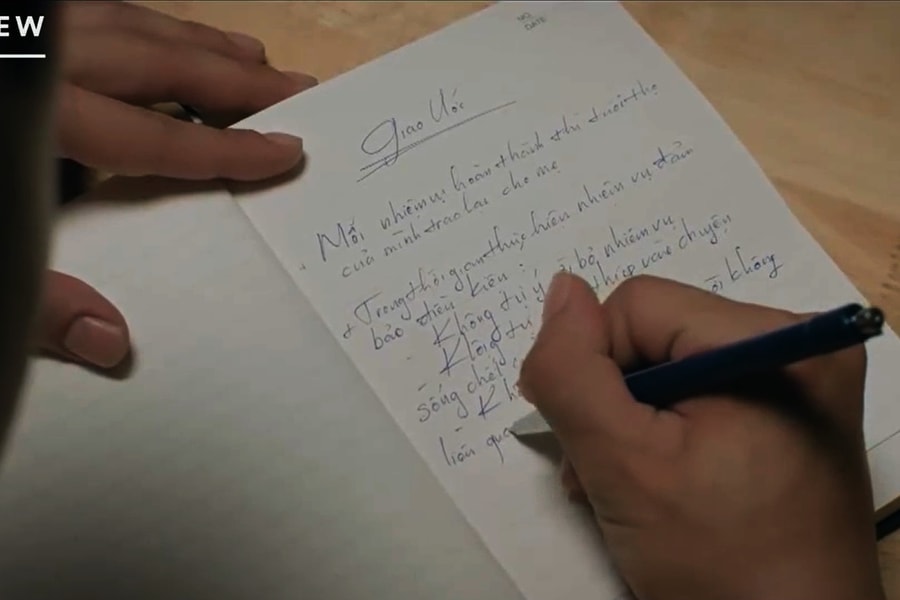 EW
NO.
DATE
Giao Ước
+ Mỗi nhiệm vụ hoàn thành thì tuổi thọ
của mình trao lại cho mẹ
+ Trong thời gian thực hiện nhiệm vụ đảm
bảo điều kiện:
- Không tự ý bỏ nhiệm vụ
- Không tự thiệp vào chuyện
sống chết không
- Kh
liên qua